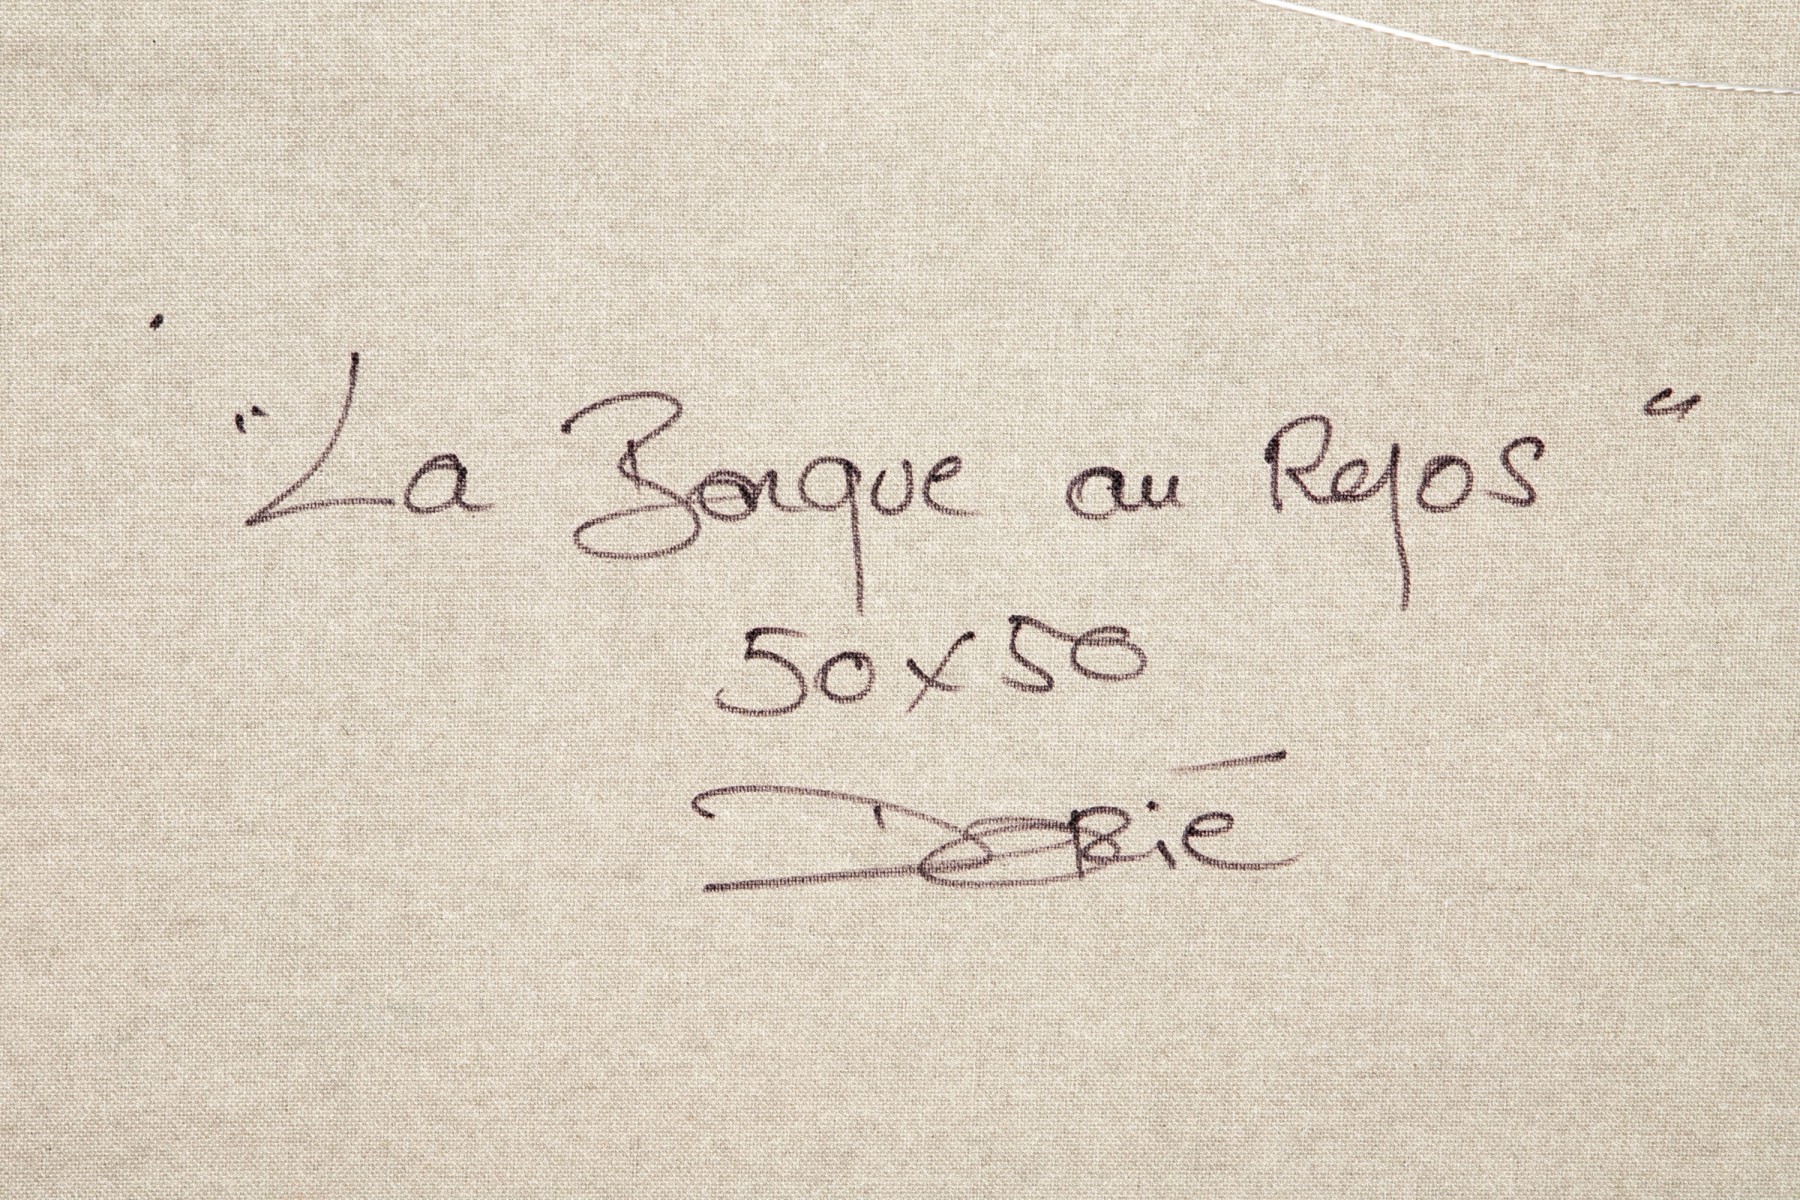 "La Barque au Repos"
50x50
Dorié